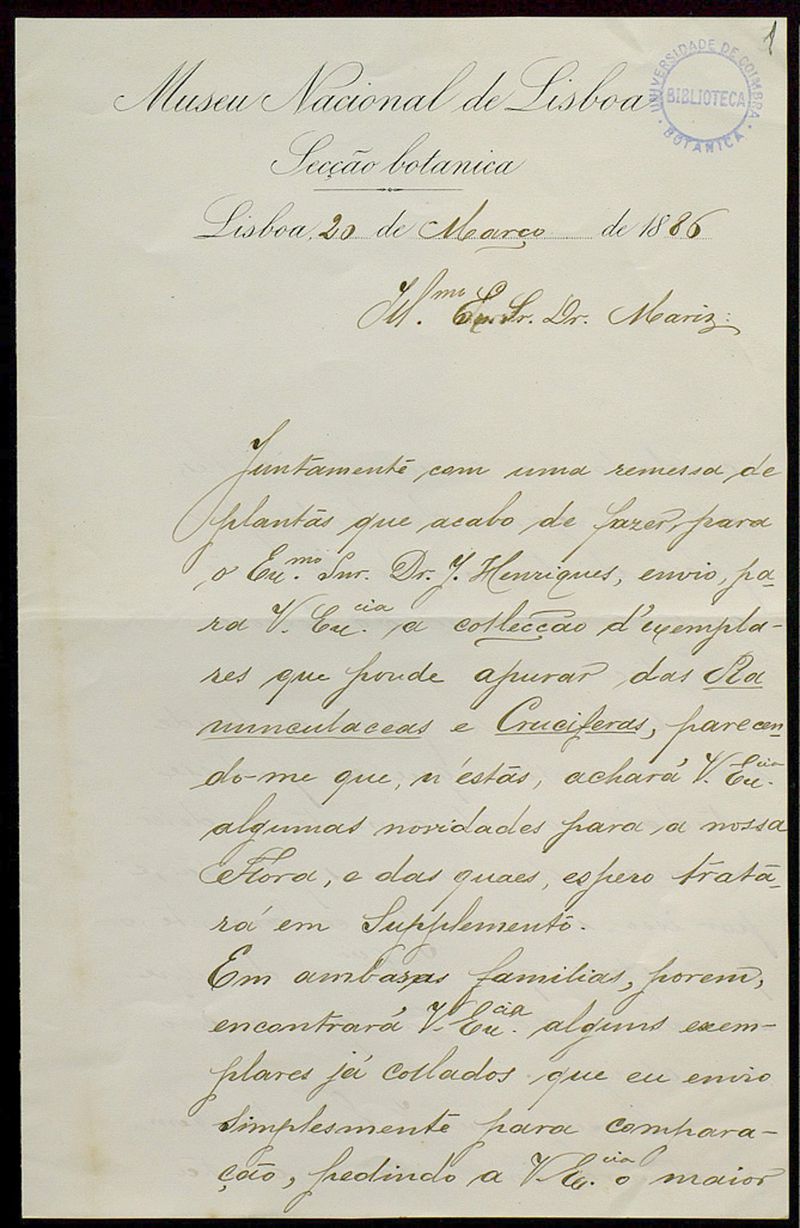 1
UNIVERSIDADE DE COIMBRA
BIBLIOTECA
BOTANICA
Museu Nacional de Lisboa
Secção botanica
Lisboa, 20 de Março de 1886
Ill.mo Ex. Sr. Dr. Mariz:
Juntamente com uma remessa de
plantas que acabo de fazer, para
o Ex.mo Snr. Dr. J. Henriques, envio, pa-
ra V. Ex.cia a collecção d'exempla-
res que poude apurar das Ra
nunculaceas e Cruciferas, parecen-
do-me que, n'estas, achará V. Ex.cia
algumas novidades para a nossa
Flora, e das quaes, espero trata-
rá em Supplemento.
Em ambas as familias, porem,
encontrará V. Ex.cia alguns exem-
plares já collados que eu envio
simplesmente para compara-
ção, pedindo a V. Ex.cia o maior